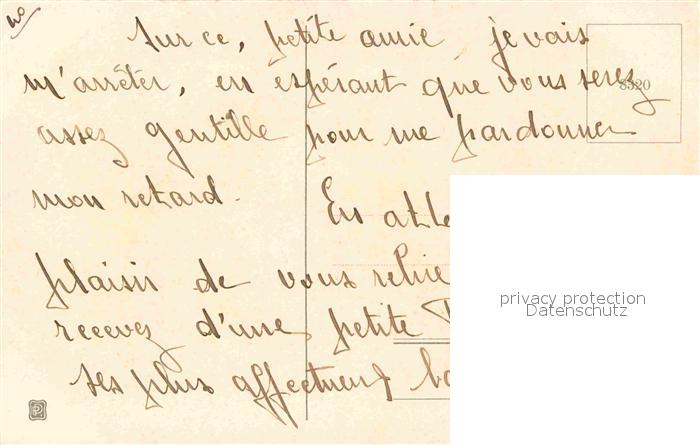 Sur ce, petite amie je vais
m'arrêter, en espérant que vous serez
8520
assez gentille pour me pardonner
mon retard.
En atte
plaisir de vous relire
recevez d'une petite
ses plus affectueux
privacy protection
Datenschutz